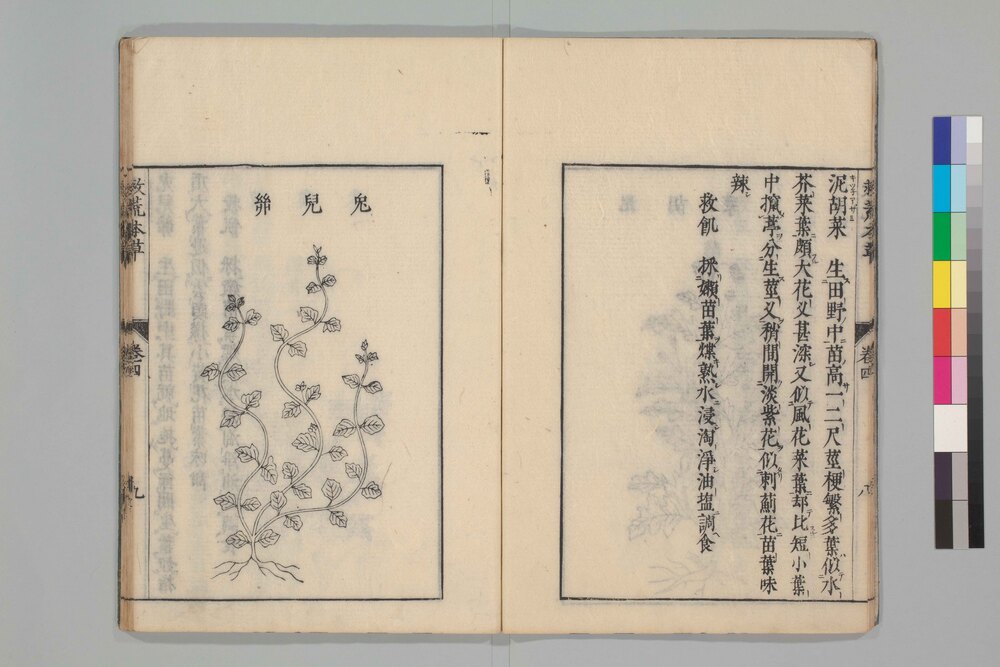 救荒本草
卷四
八
泥胡菜 生田野中苗高一二尺莖梗繁多葉似水
キツネアザミ
芥菜葉頗大花叉甚深又似風花菜葉却比短小葉
中攛葶分生莖叉稍間開淡紫花似刺薊花苗葉味
辣
救飢 採嫩苗葉煠熟水浸淘淨油塩調食
兒兒
救荒本草
卷四
九